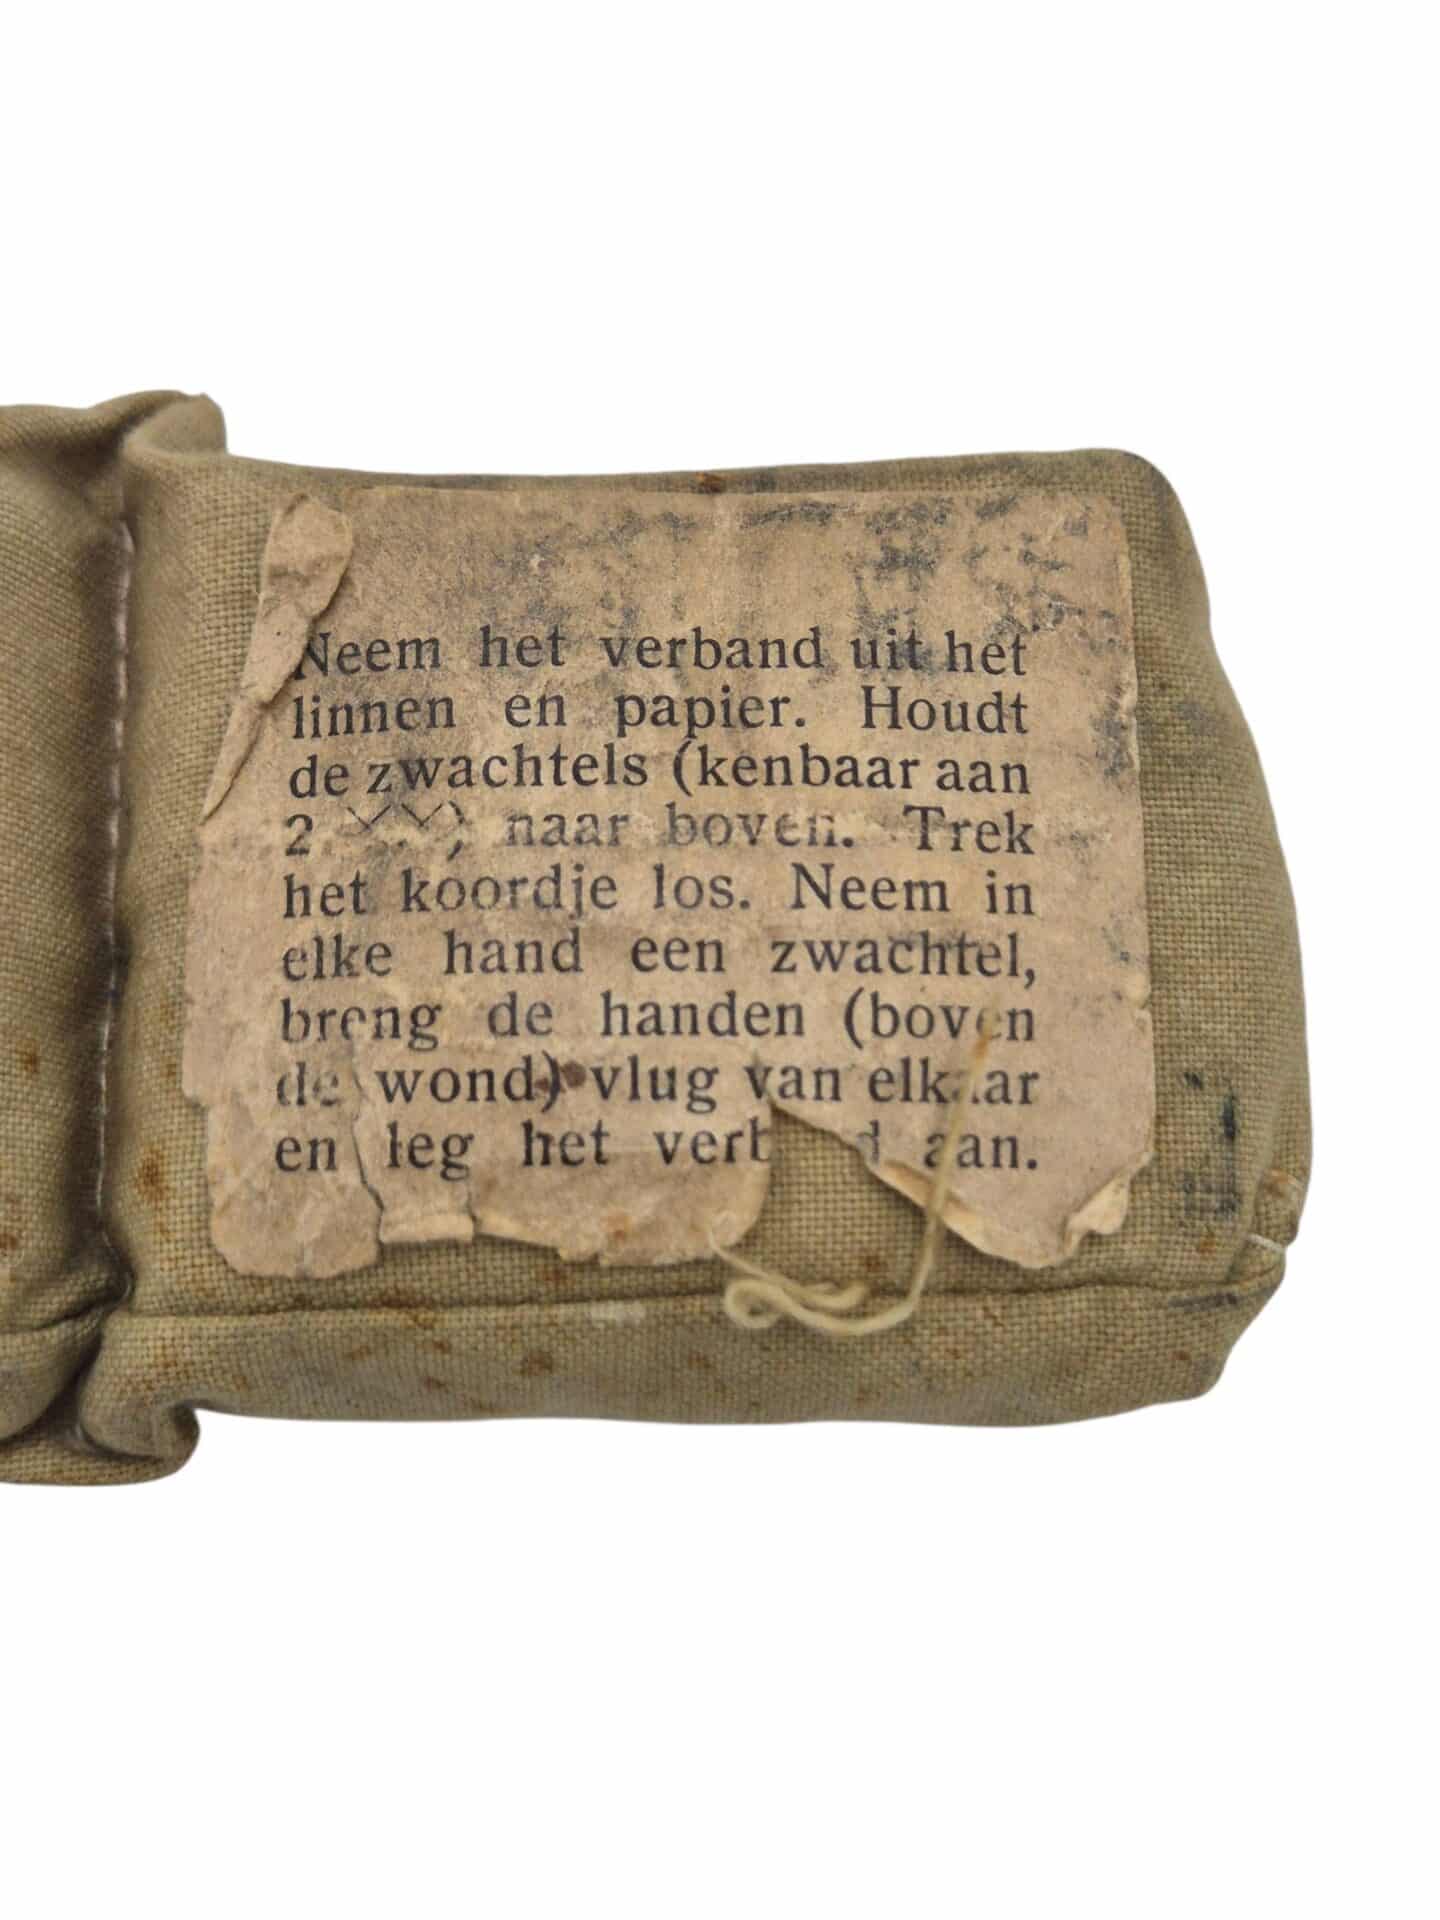 Neem het verband uit het
linnen en papier. Houdt
de zwachtels (kenbaar aan
2 naar boven. Trek
het koordje los. Neem in
elke hand een zwachtel,
breng de handen (boven
de wond) vlug van elkaar
en leg het verb d aan.